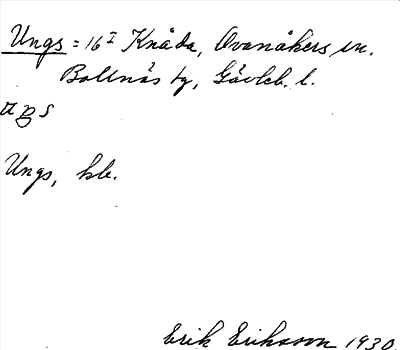 Ungs = 16 I Knåda, Ovanåkers sn.
Bollnäs tg, Gävleb. l.
Ungs, hb.
Erik Eriksson 1930.